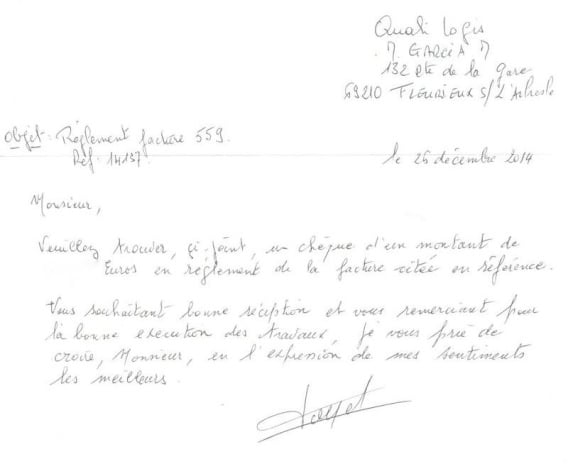 Quali Logis
M GARCIA M
132 Rte de la Gare
69210 FLEURIEUX S/ L'Arbresle
Objet : Réglement facture 559.
Réf. 14137.
le 26 décembre 2014
Monsieur,
Veuillez trouver, çi-joint, un chèque d'un montant de
Euros en règlement de la facture citée en référence.
Vous souhaitant bonne réception et vous remerciant pour
la bonne execution des travaux, je vous prie de
croire, Monsieur, en l'expression de mes sentiments
les meilleurs.